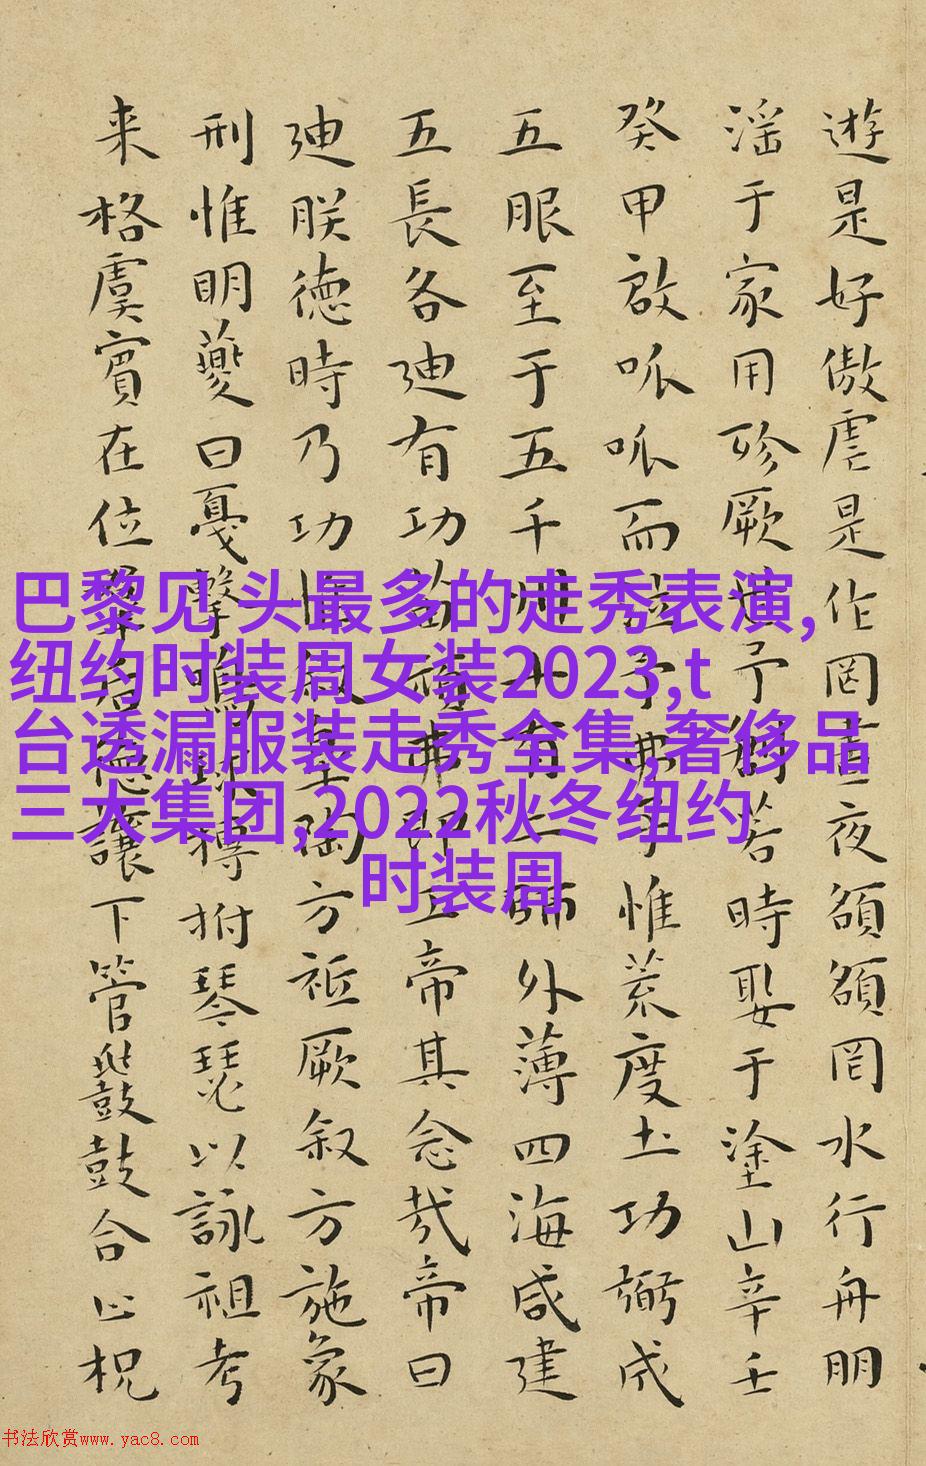 遊是好傲虐是作罔晝夜頟頟罔水行舟朋
滛于家用殄厥予若時娶于塗山辛壬
癸甲啟呱呱而予弗惟荒度土功弼成
五服至于五千州十有二師外薄四海咸建
五長各迪有功苗頑弗即工帝其念哉帝曰
迪朕德時乃功惟叙皋陶方祗厥叙方施象
刑惟明夔曰戛擊鳴球搏拊琴瑟以詠祖考
来格虞賓在位羣后德讓下管鼗鼓合止柷
巴黎见 头最多的走秀表演,
纽约时装周女装2023,t
台透漏服装走秀全集,奢侈品
三大集团,2022秋冬纽约
时装周
书法欣赏www.yac8.com